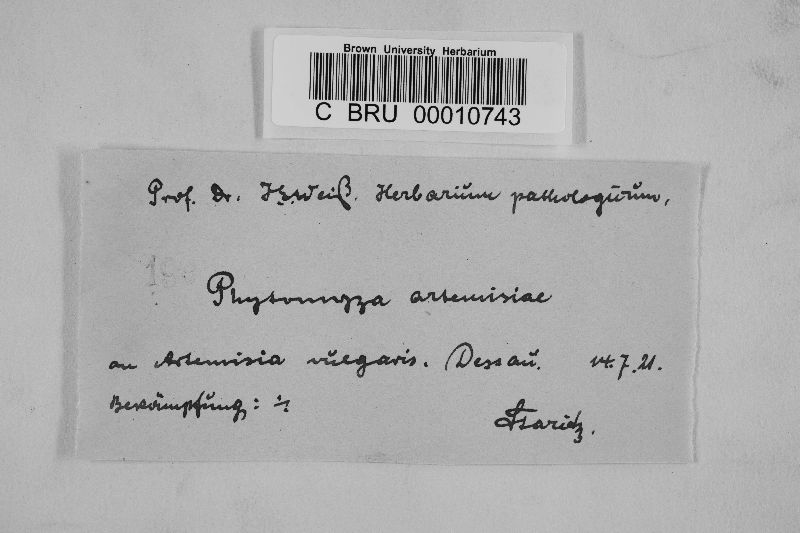 Brown University Herbarium
C BRU 00010743
Prof. Dr. Weiß. Herbarium pathologicum,
Phytomyza artemisiae
an Artemisia vulgaris. Dessau. 14.7.21.
Bekämpfung: ∻
Staritz.